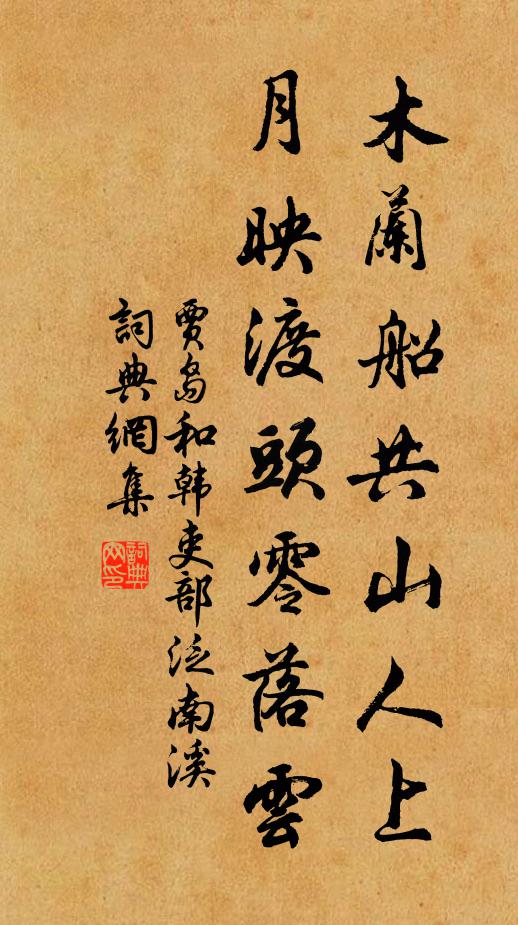 木蘭船共山人上
月映渡頭零落雲
賈島和韩吏部泛南溪
詞典網集
詞典
网印